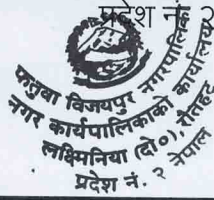 प्रदेश नं. २
फतुवा विजयपुर नगरपालिका
नगर कार्यपालिकाको कार्यालय
लक्ष्मिनिया (दो०), रौतहट
प्रदेश नं. २ नेपाल